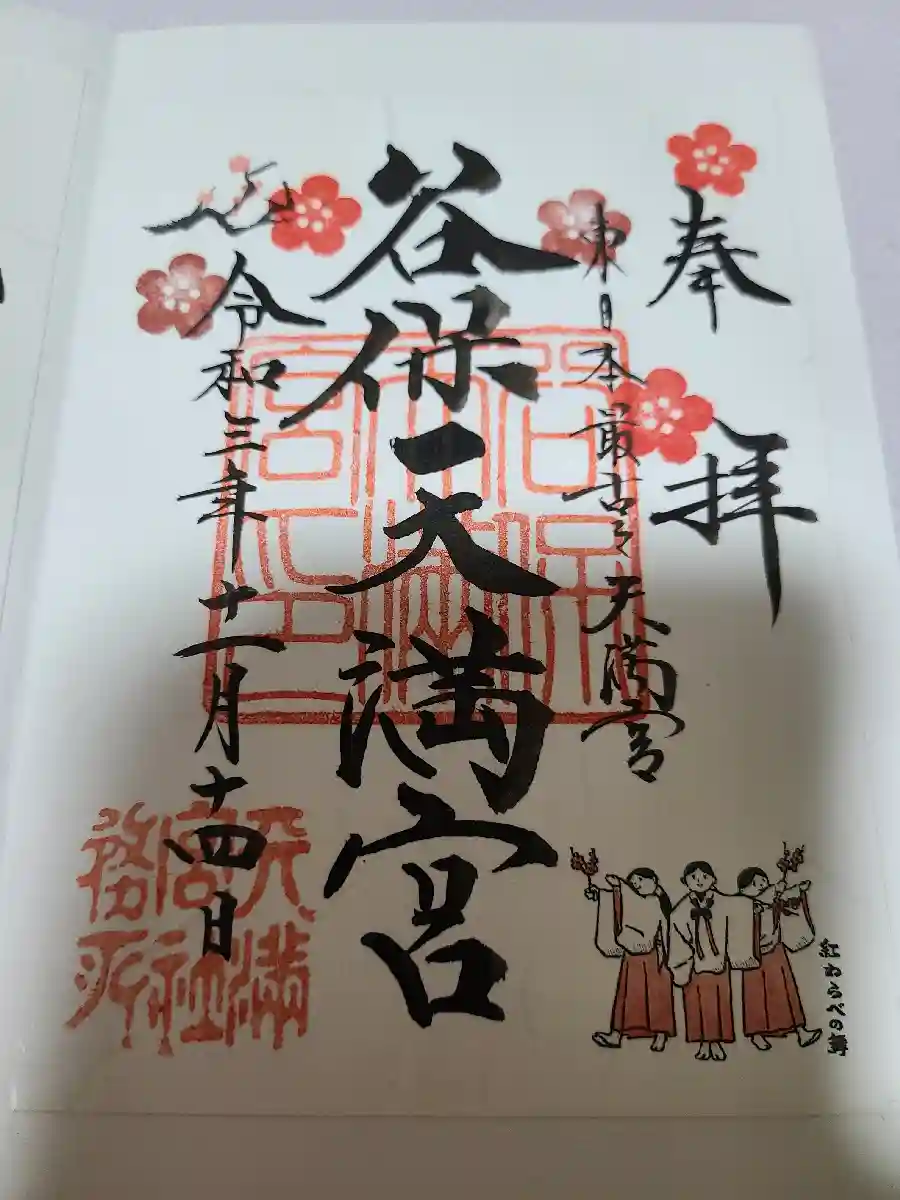 奉拝
東日本最古之天満宮
谷保天満宮
令和三年十一月十四日
天満
宮社
務所
紅わらべの舞